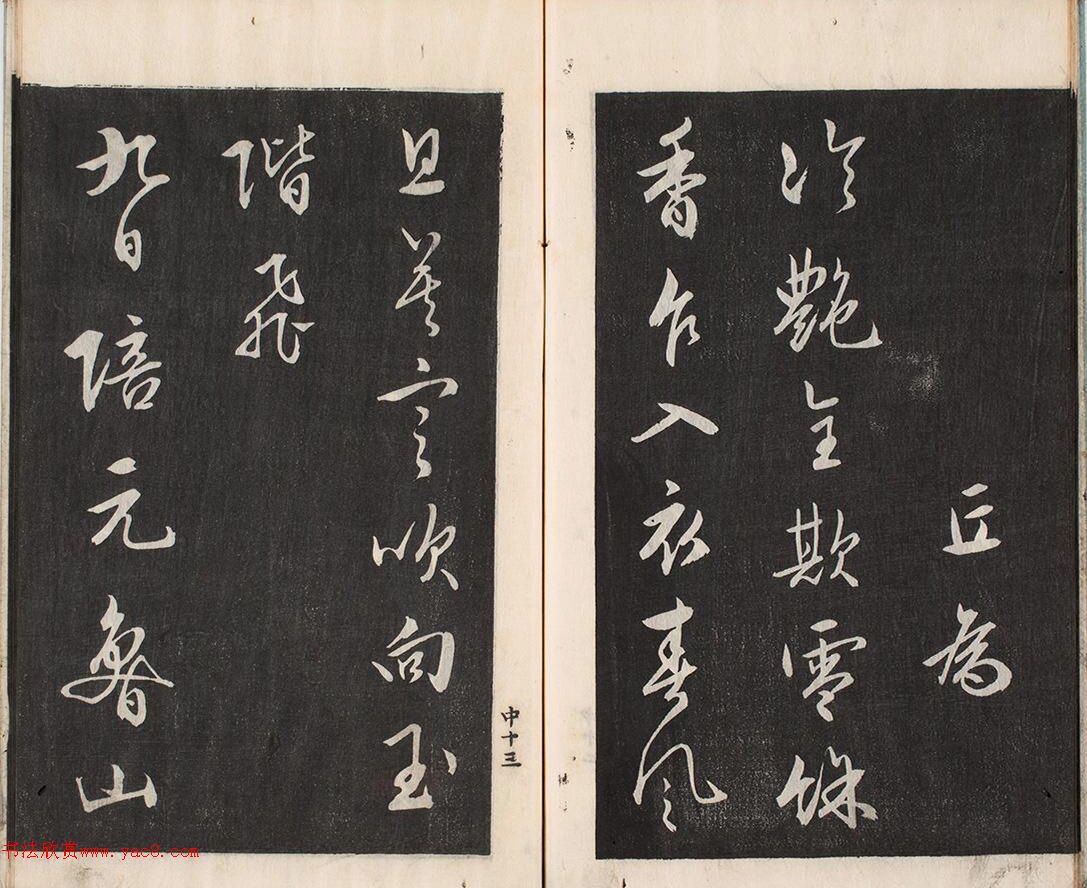 丘為
冷艶全欺雪餘
香乍入衣春風
且莫定吹向玉
階飛
九日陪元魯山
中十三
书法欣赏www.yac8.com